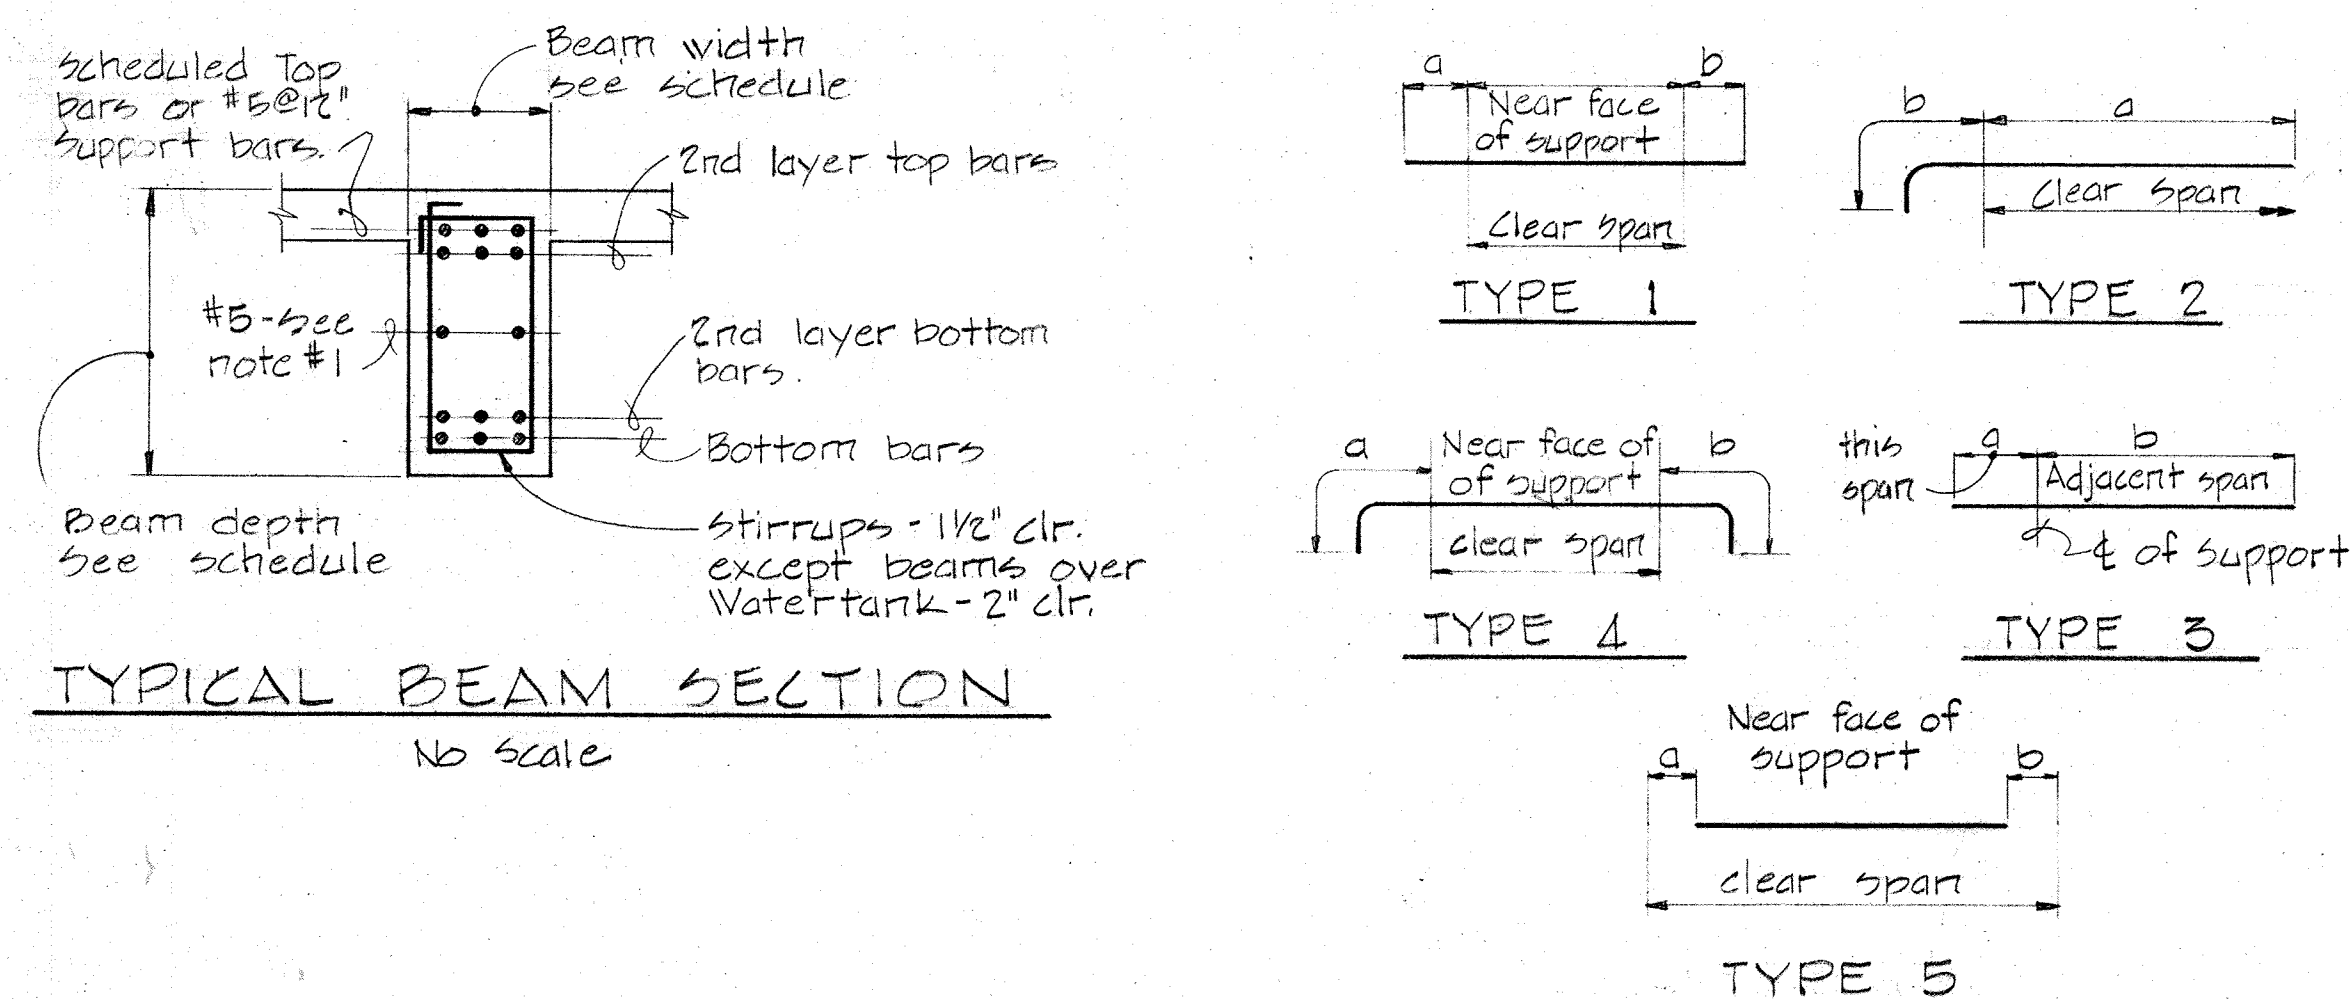 Scheduled Top
bars or #5@12"
Support bars.
Beam width
see schedule
2nd layer top bars
#5-see
note #1
2nd layer bottom
bars.
Bottom bars
Beam depth
see schedule
Stirrups - 1½" clr.
except beams over
Water tank - 2" clr.
TYPICAL BEAM SECTION
No Scale
a
b
Near face
of support
Clear span
TYPE 1
b
a
Clear span
TYPE 2
a
Near face of
of support
b
clear span
TYPE 4
this
span
a
b
Adjacent span
℄ of support
TYPE 3
Near face of
support
a
b
clear span
TYPE 5